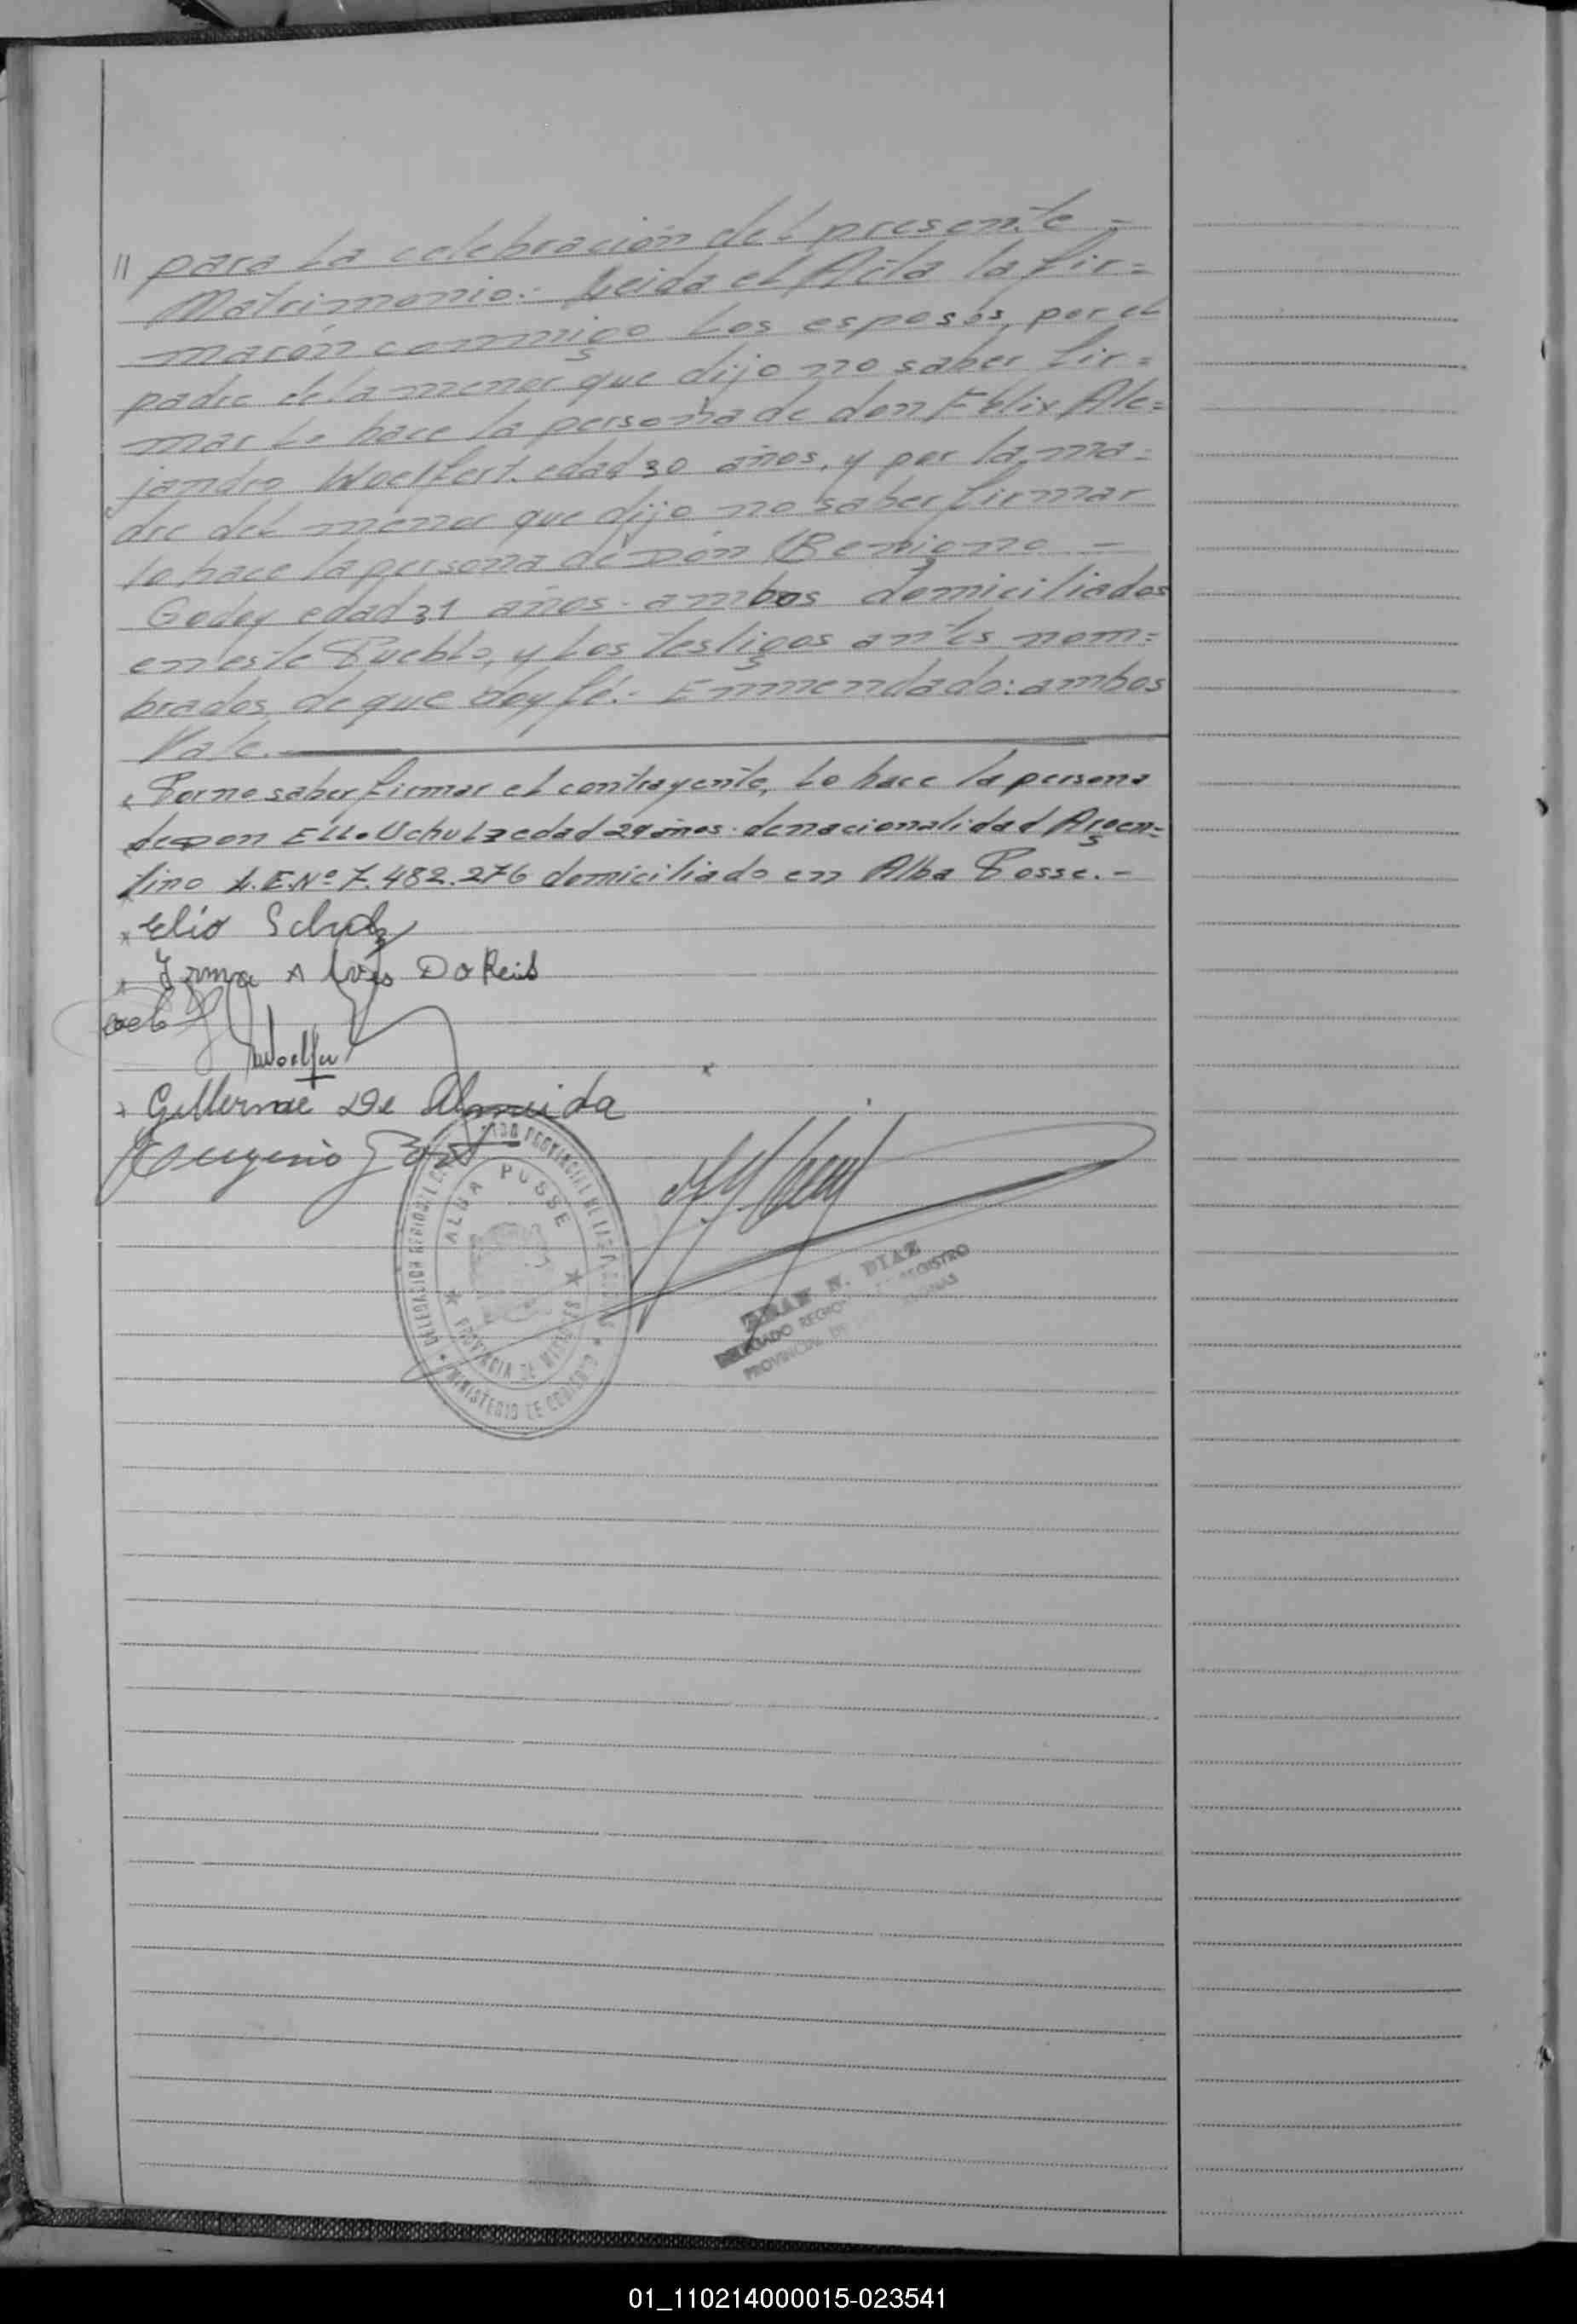 // para la celebración del presente =
Matrimonio.- Leida el Acta la fir=
marón conmigo los esposos, por el
padre de la menor que dijo no saber fir=
mar lo hace la persona de don Félix Ale=
jandro Woelfert. edad 30 años, y por la ma=
dre del menor que dijo no saber firmar
lo hace la persona de Dón Benigno -
Godoy edad 31 años. ambos domiciliados
en este Pueblo, y los testigos antes nom=
brados, de que doy fé.- Enmendado: ambos
Vale.
Por no saber firmar el contrayente, lo hace la persona
de don Elio Schulz edad 29 años. de nacionalidad Argen=
tino L.E.Nº 7.482.276 domiciliado en Alba Posse.-
Elio Schulz
Irma Alves Do Reis
Woelfer
De Almeida
Eugenio
ALBA POSSE
PROVINCIA DE MISIONES
MINISTERIO DE GOBIERNO
N. DIAZ
DELEGADO REGIO REGISTRO
PROVINCIAL DE
01_110214000015-023541